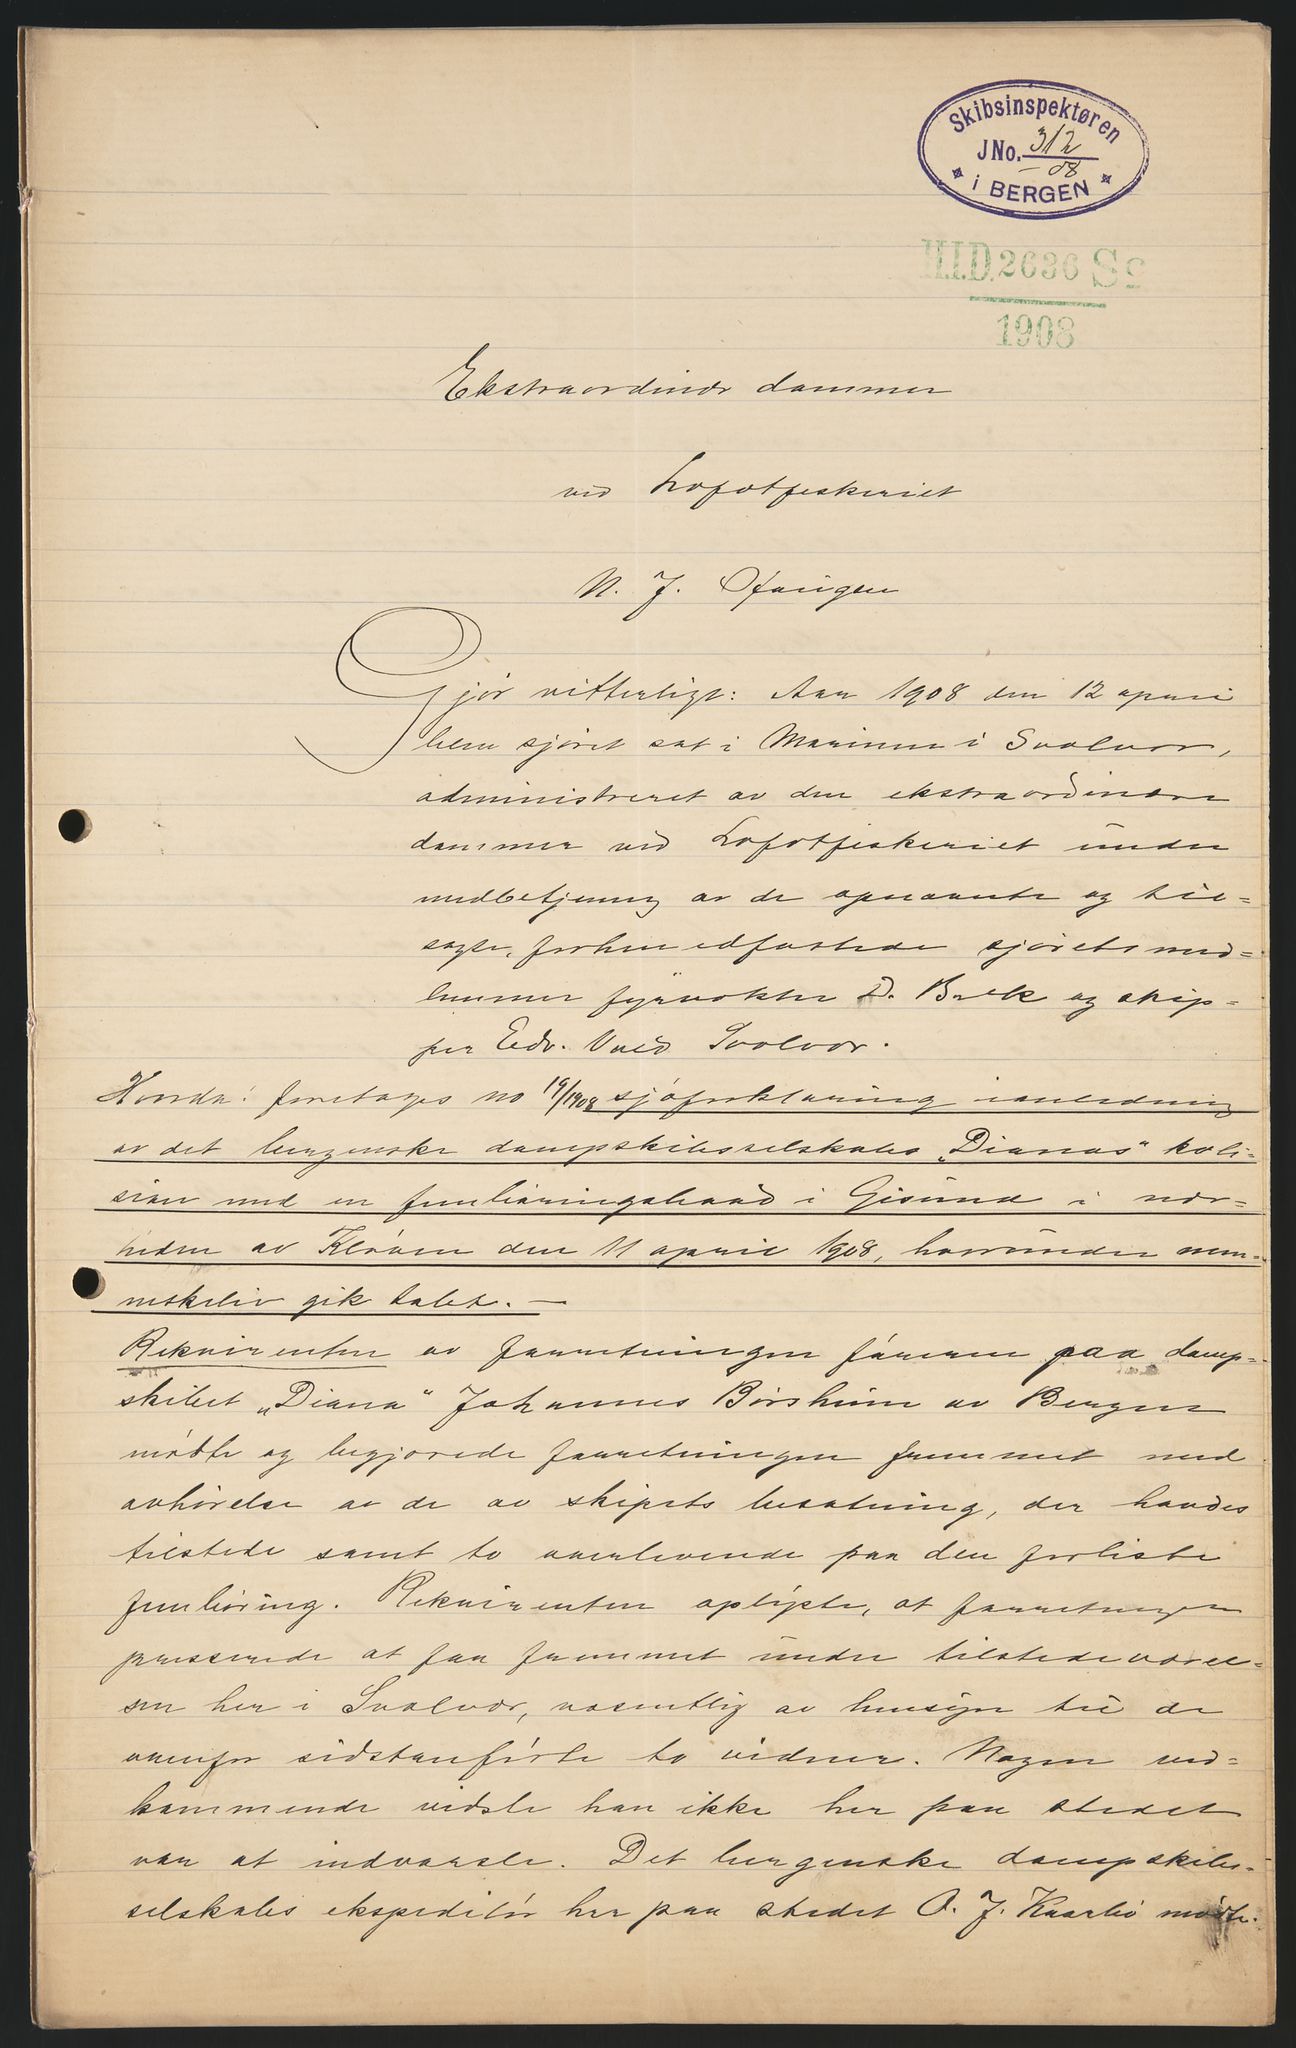 Skibsinspektøren
JNo. 312
-08
i BERGEN
H.I.D. 2636 Sc
1908
Ekstraordinær dommer
ved Lofotfiskeriet
N. J. Øfsingen
Gjør vitterligt: Aar 1908 den 12 april
blev sjøret sat i Marinen i Svolvær,
administreret av den ekstraordinære
dommer ved Lofotfiskeriet under
medbetjening av de opnævnte og til-
sagte, forhen edfæstede sjøretsmed-
lemmer fyrvokter D. Brek og skip-
per Edv. Vaeö Svolvær.
Hvorda: foretages no 19/1908 sjøforklaring i anledning
av det bergenske dampskibsselskabs "Dianas" koli-
sion med en fembøringsbaad i Gisund i nær-
heden av Kløven den 11 april 1908, hvorunder men-
neskeliv gik tabt. —
Rekvirenten av forretningen føreren paa damp-
skibet "Diana" Johannes Børsheim av Bergen
mødte og begjærede forretningen fremmet med
avhørelse av de av skipets besætning, der havdes
tilstede samt to overlevende paa den forliste
fembøring. Rekvirenten oplyste, at forretningen
presserede at faa fremmet under tilstedeværel-
sen her i Svolvær, væsentlig av hensyn til de
ovenfor sidstanførte to vidner. Nogen ved-
kommende vidste han ikke her paa stedet
var at indvarsle. Det bergenske dampskibs-
selskabs ekspeditør her paa stedet O. J. Kaarbø mødte.